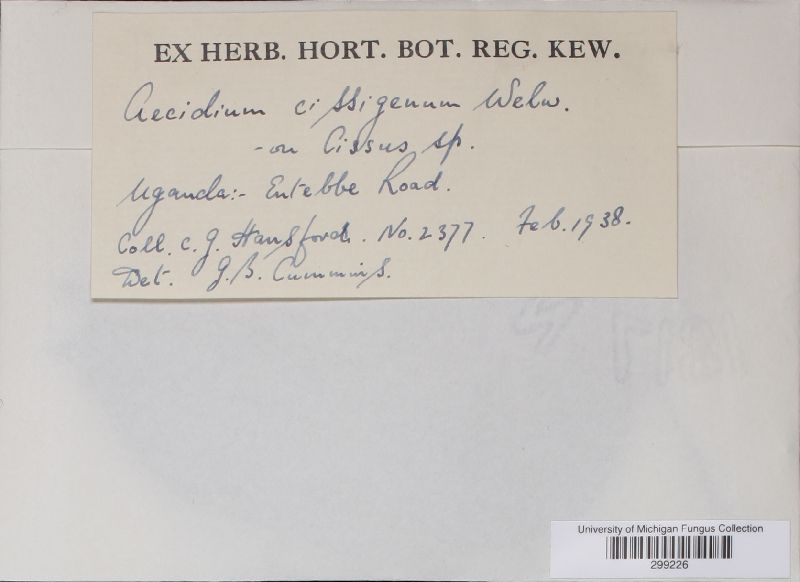 EX HERB. HORT. BOT. REG. KEW.
Aecidium cissigenum Welw.
- on Cissus sp.
Uganda:- Entebbe Road.
Coll. C. G. Hansford. No. 2377. Feb. 1938.
Det. G. B. Cummins.
University of Michigan Fungus Collection
299226